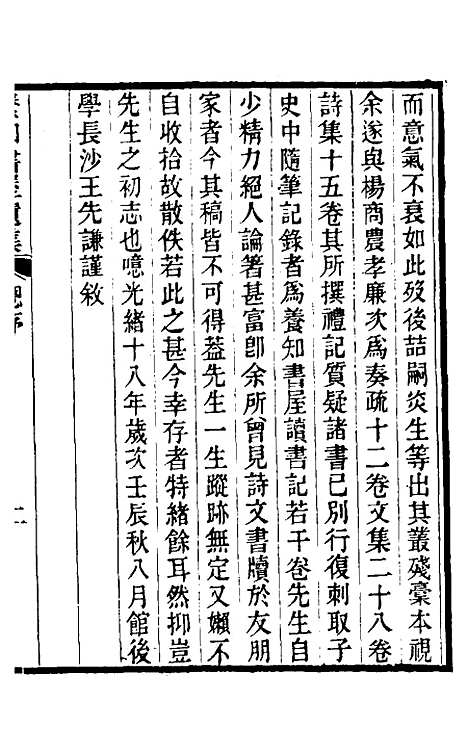 而意氣不衰如此歿後喆嗣炎生等出其叢殘稾本視
余遂與楊商農孝廉次爲奏疏十二卷文集二十八卷
詩集十五卷其所撰禮記質疑諸書已別行復刺取子
史中隨筆記錄者爲養知書屋讀書記若干卷先生自
少精力絕人論箸甚富卽余所曾見詩文書牘於友朋
家者今其稿皆不可得葢先生一生蹤跡無定又嬾不
自收拾故散佚若此之甚今幸存者特緒餘耳然抑豈
先生之初志也噫光緒十八年歲次壬辰秋八月館後
學長沙王先謙謹敘
養知書屋
集
總序
二